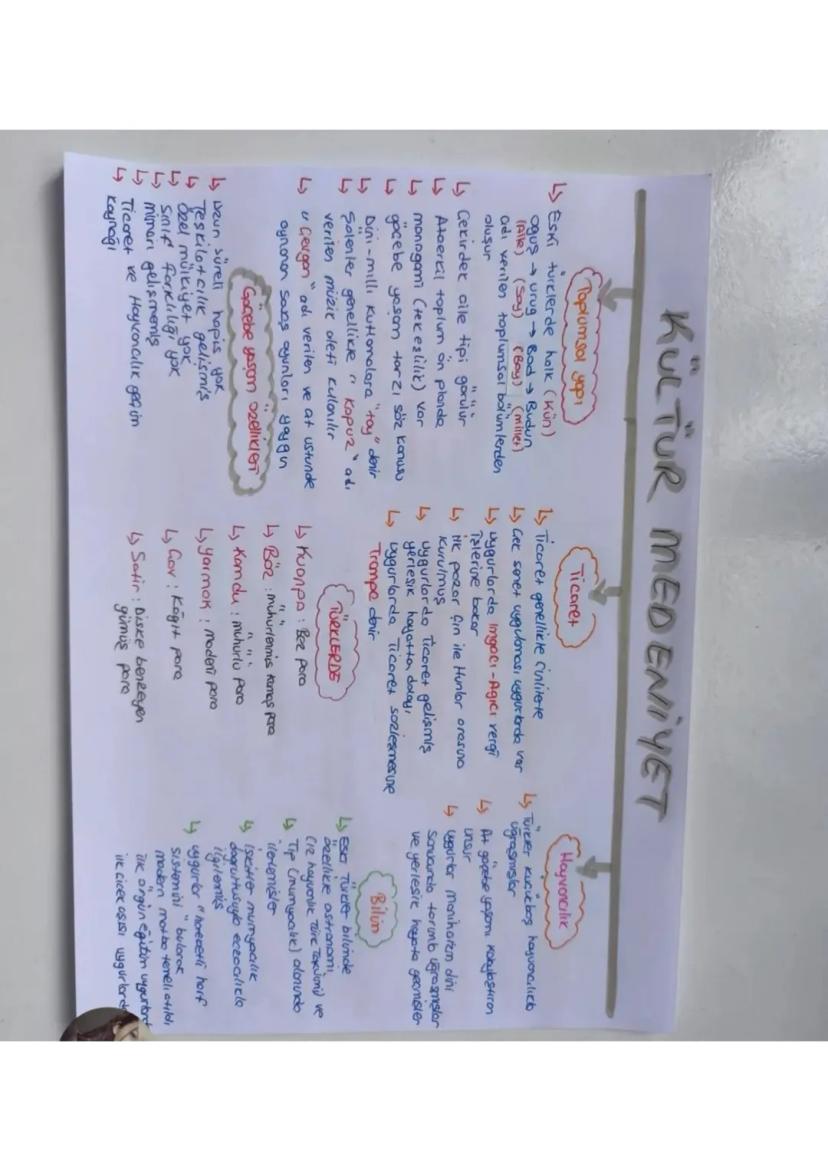 KÜLTÜR MEDENİYET
Toplumsal yapı
↳ Eski türklerde halk (Kün)
oğuş → urug → Bod → Budun
(Aile) (Soy) (Boy) (millet)
adı verilen toplumsal bölümlerden
oluşur
↳ Çekirdek aile tipi görülür
↳ Ataerkil toplum ön planda
↳ monogami (tek eslilik) var
↳ göçebe yaşam tarzı söz konusu
↳ Dini-milli kutlamalara "toy" denir
↳ Şölenler genellikle "Kopuz" adı
verilen müzik aleti kullanılır
↳ "Çevgen" adı verilen ve at ustunde
oynanan savaş oyunları yaygın
Göçebe yaşam özellikleri
↳ uzun süreli hapis yok
↳ Teşkilatcılık gelişmiş
↳ Özel mülkiyet yok
↳ Sınıf farklılığı yok
↳ mimari gelişmemiş
↳ Ticaret ve Hayvancılık geçim
kaynağı
Ticaret
↳ Ticaret genellikle Çinlilerle
↳ Çek senet uygulaması uygurlarda var
↳ uygurlarda Imgacı-Agıcı vergi
işlerine bakar
↳ ilk pazar Çin ile Hunlar arasına
kurulmuş
↳ uygurlarda Ticaret gelişmiş
yerleşik hayatta dolayı
↳ uygurlarda Ticaret sözleşmesine
Trampa denir
TÜRKLERDE
↳ Kuanpo : Bez para
↳ Böz : mühürlenmiş kumaş para
↳ Kamdu : mühürlü para
↳ yarmak : madeni para
↳ Çav : Kağıt para
↳ Satir : Diske benzeyen
gümüş para
Hayvancılık
↳ Türkler küçükbaş hayvancılıkla
uğraşmışlar
↳ At göçebe yaşamı kolaylaştıran
unsur
↳ uygurlar maniheizm dini
sonucunda tarımla uğraşmışlar
ve yerleşik hayata geçmişler
Bilim
↳ Eski Türkler bilimde
özellikle astronomi
(12 hayvanlık Türk Takvimi) ve
↳ Tıp (mumyacılık) alanında
ilerlemişler
↳ İskitler mumyacılık
doğrultusuyla eczacılıkla
ilgilenmiş
↳ uygurlar "hareketli harf
sistemini" bularak
modern matba temeli atıldı
ilk örgün eğitim uygurlard
ilk çiçek aşısı uygurlard